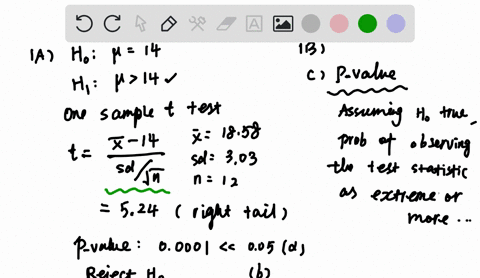 1A) H₀: μ = 14
H₁: μ > 14 ✓
One sample t test
t = (x̄ - 14) / (sd/√n)
x̄ = 18.58
sd = 3.03
n = 12
= 5.24 (right tail)
p-value: 0.0001 << 0.05 (α)
Reject H₀
(b)
1B)
c) p-value
Assuming H₀ true,
prob of observing
the test statistic
as extreme or
more ...